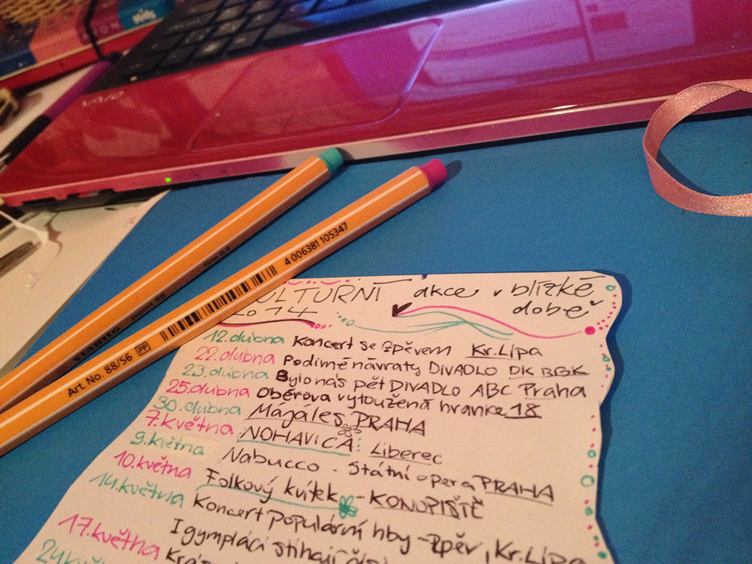 VAIO
STABILO
Art. No. 88/56 PP
4 006381 105347
KULTURNÍ akce v blízké době
2014
12.dubna Koncert se zpěvem Kr.Lípa
22.dubna Podivné návraty DIVADLO DK BBK
23.dubna Bylo nás pět DIVADLO ABC Praha
25.dubna Oběrova vytoužená hranice 18
30.dubna Majáles PRAHA
7.května NOHAVICA Liberec
9.května Nabucco - Státní opera PRAHA
10.května Folkový kvítek - KONOPIŠTĚ
14.května Koncert populární hby - zpěv, Kr.Lípa
17.května I gympláci stíhají
24.kv